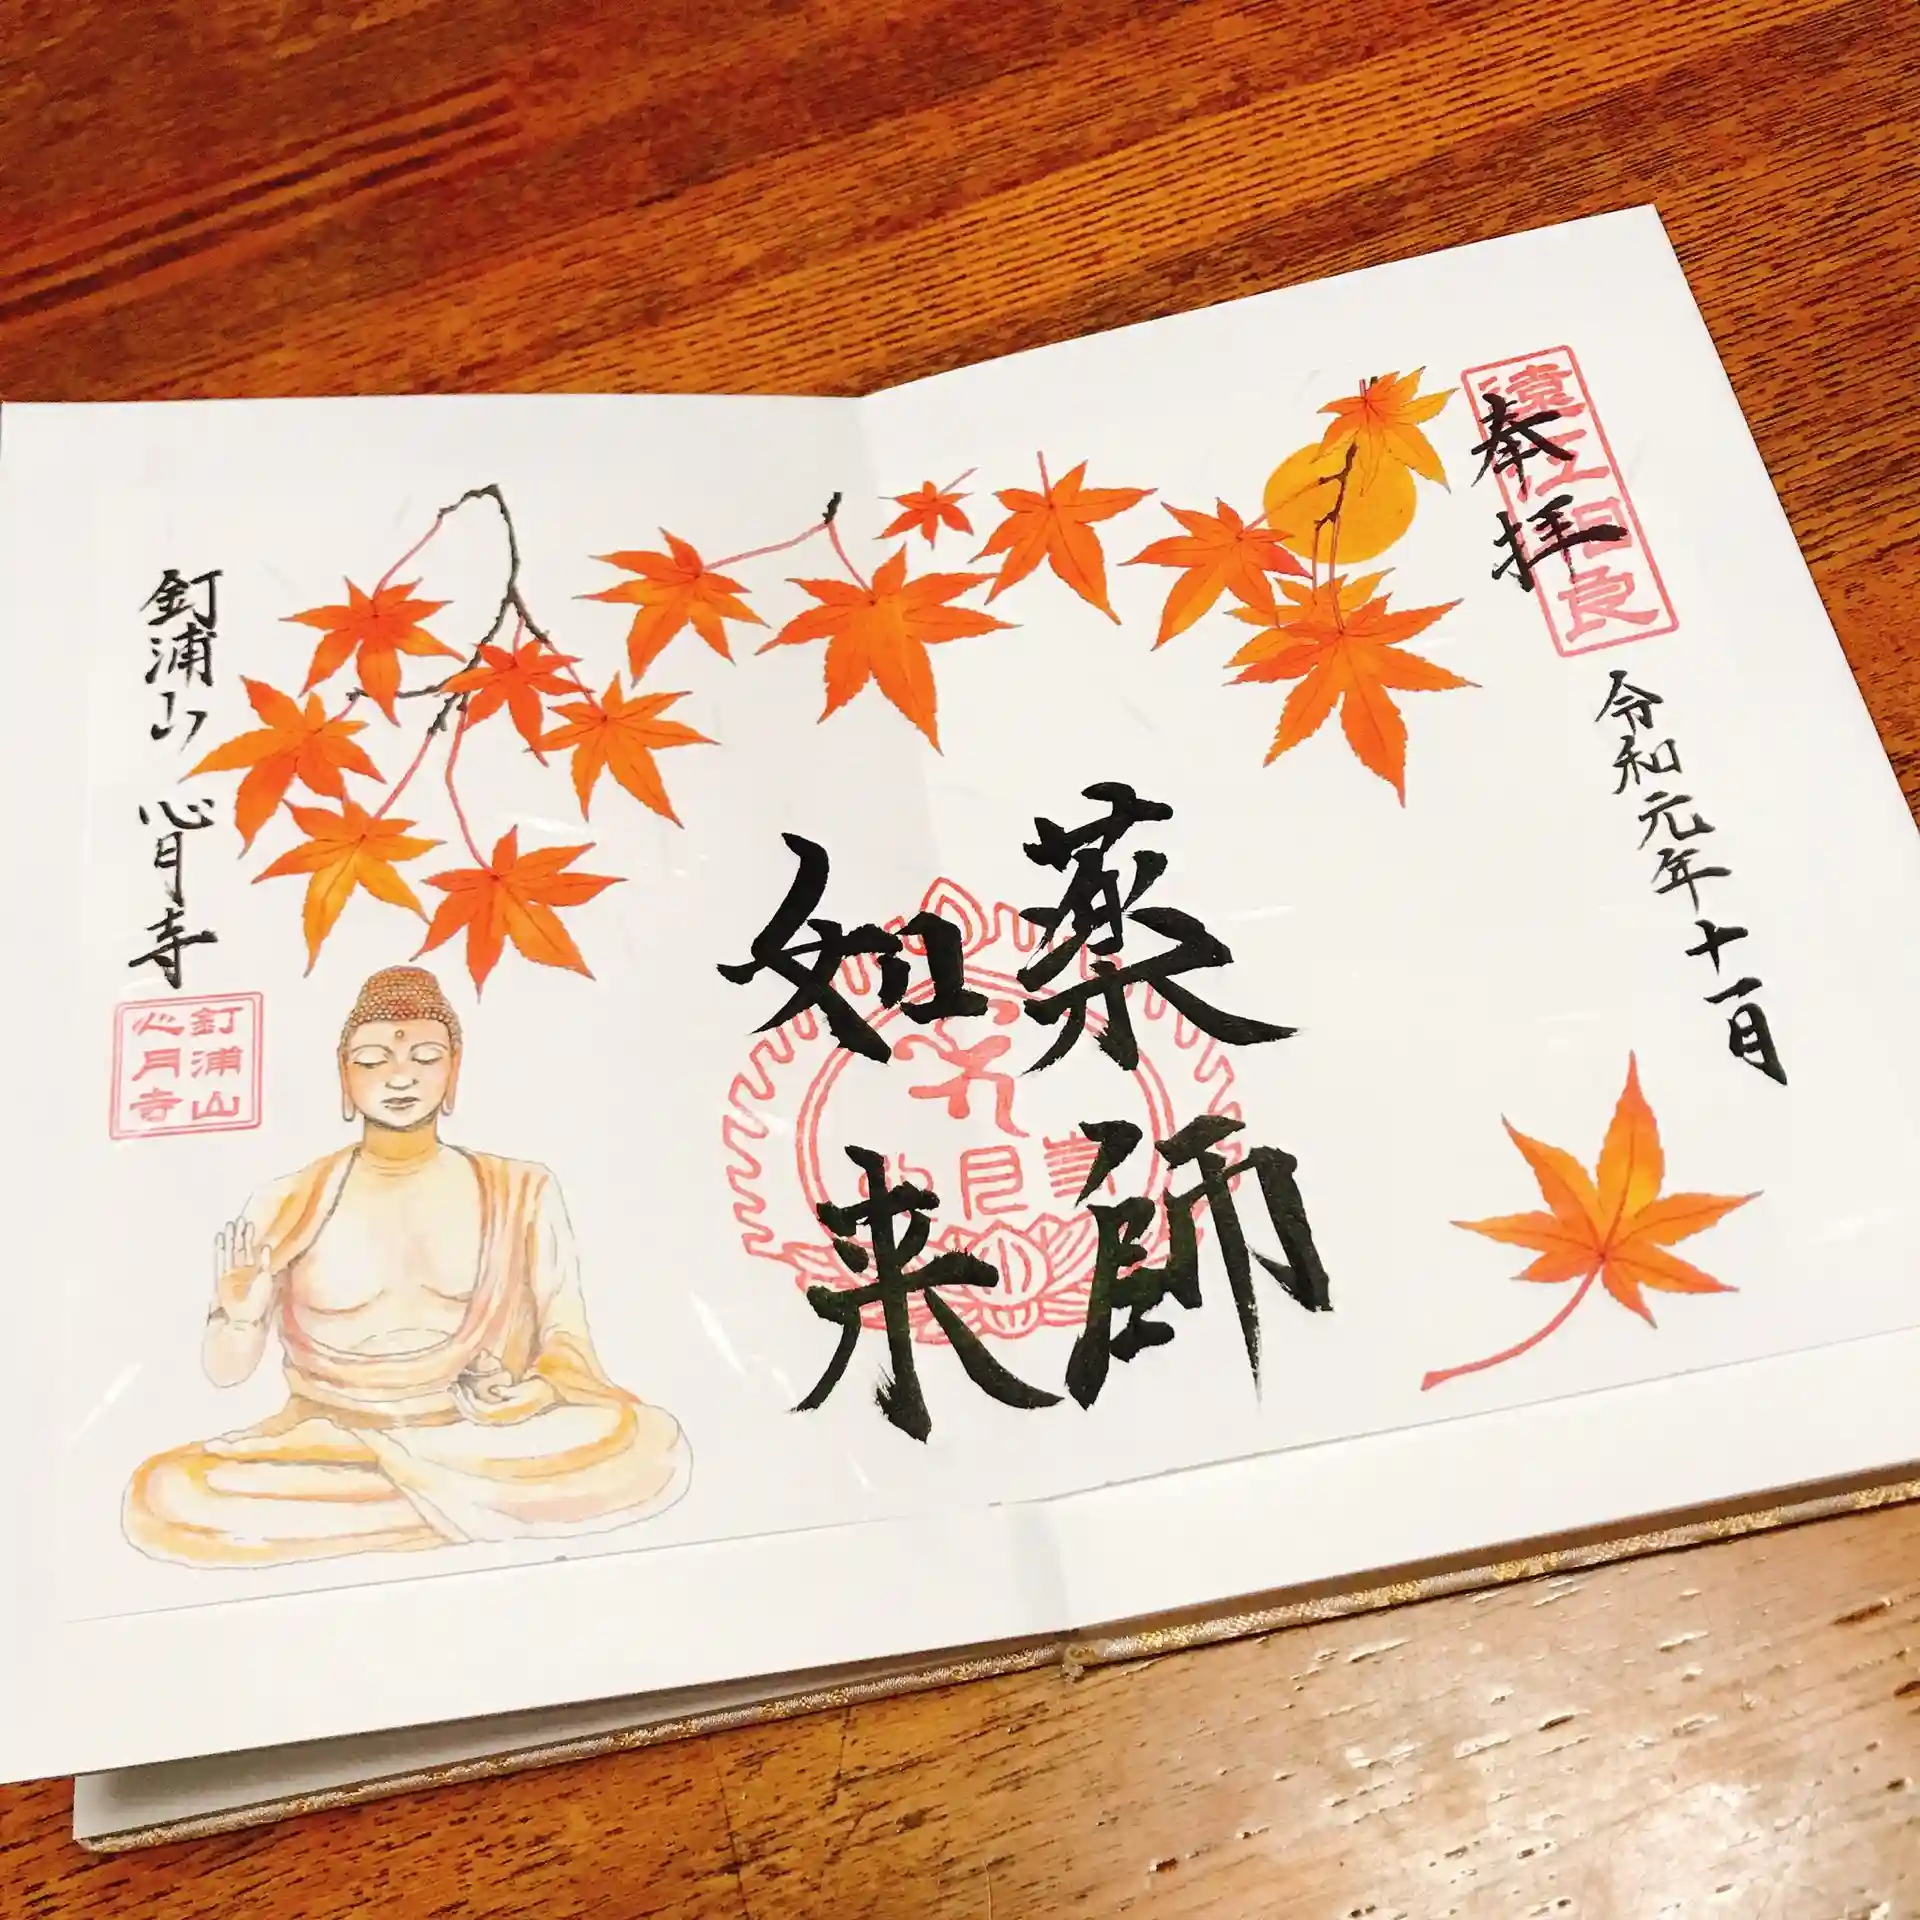 奉拝
遠江和良
令和元年十一月
薬師
如来
釘浦山 心月寺
釘浦山
心月寺